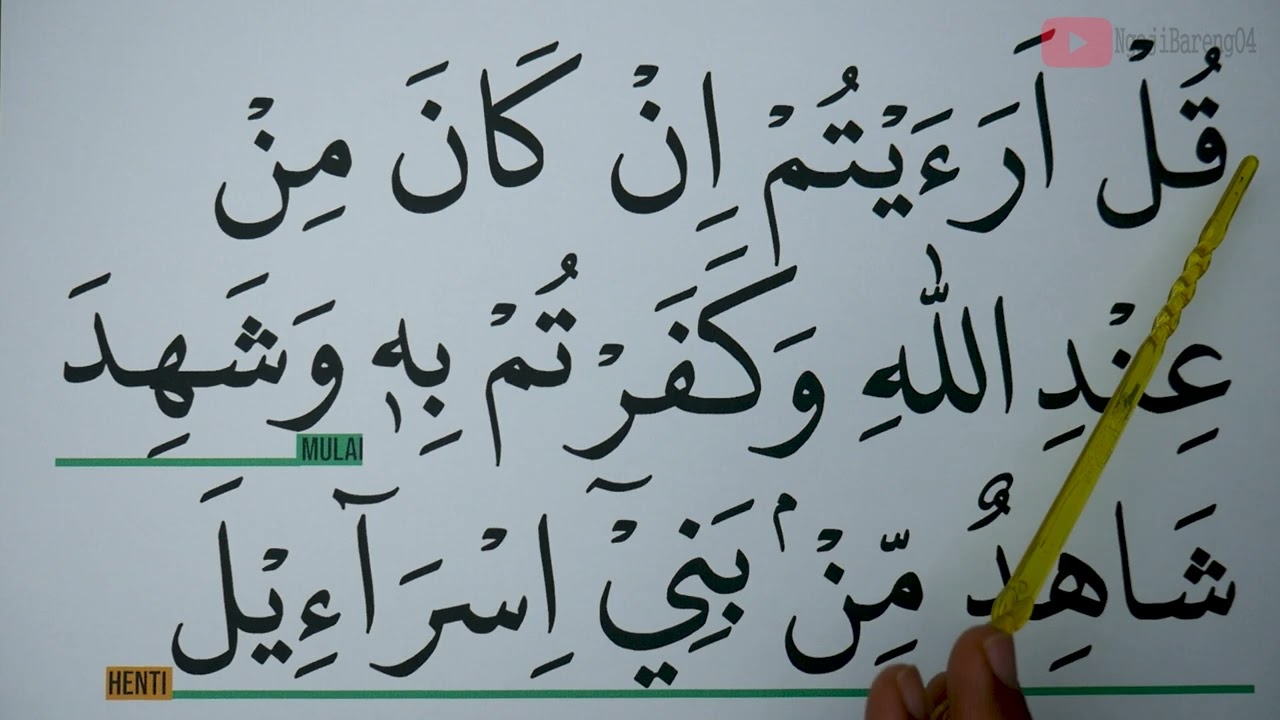 NgajiBareng04
قُلْ اَرَءَيْتُمْ اِنْ كَانَ مِنْ
عِنْدِ اللّٰهِ وَكَفَرْتُمْ بِهٖ وَشَهِدَ
MULAI
شَاهِدٌ مِّنْۢ بَنِيْٓ اِسْرَآءِيْلَ
HENTI